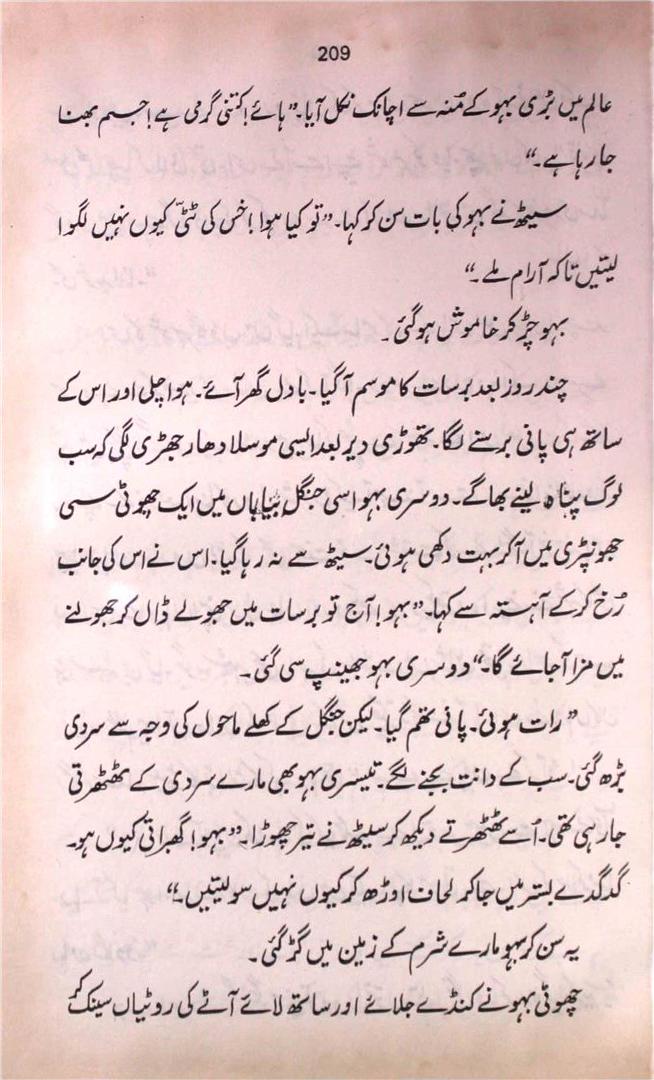 209
عالم میں بڑی بہو کے مُنہ سے اچانک نکل آیا۔ ”ہائے! کتنی گرمی ہے! جسم بھنا
جا رہا ہے۔“
سیٹھ نے بہو کی بات سن کر کہا۔ ”تو کیا ہوا! خس کی ٹٹّی کیوں نہیں لگوا
لیتیں تاکہ آرام ملے۔“
بہو چڑ کر خاموش ہو گئی۔
چند روز بعد برسات کا موسم آ گیا۔ بادل گھر آئے۔ ہوا چلی اور اس کے
ساتھ ہی پانی برسنے لگا۔ تھوڑی دیر بعد ایسی موسلا دھار جھڑی لگی کہ سب
لوگ پناہ لینے بھاگے۔ دوسری بہو اسی جنگل بیاباں میں ایک چھوٹی سی
جھونپڑی میں آ کر بہت دکھی ہوئی۔ سیٹھ سے نہ رہا گیا۔ اس نے اس کی جانب
رُخ کر کے آہستہ سے کہا۔ ”بہو! آج تو برسات میں جھولے ڈال کر جھولنے
میں مزا آ جائے گا۔“ دوسری بہو جھینپ سی گئی۔
”رات ہوئی۔ پانی تھم گیا۔ لیکن جنگل کے کھلے ماحول کی وجہ سے سردی
بڑھ گئی۔ سب کے دانت بجنے لگے۔ تیسری بہو بھی مارے سردی کے ٹھٹھرتی
جا رہی تھی۔ اُسے ٹھٹھرتے دیکھ کر سیٹھ نے تیر چھوڑا۔ ”بہو! گھبراتی کیوں ہو۔
گدگدے بستر میں جا کر لحاف اوڑھ کر کیوں نہیں سو لیتیں۔“
یہ سن کر بہو مارے شرم کے زمین میں گڑ گئی۔
چھوٹی بہو نے کنڈے جلائے اور ساتھ لائے آٹے کی روٹیاں سینک کر